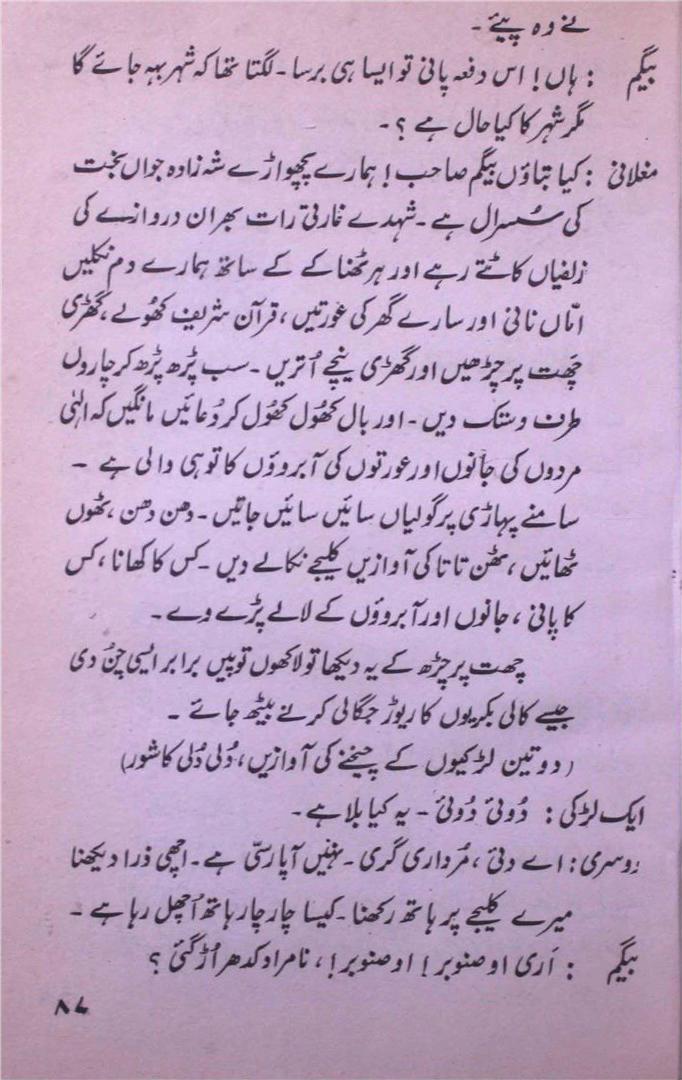 نے وہ پیئے ۔
بیگم : ہاں! اس دفعہ پانی تو ایسا ہی برسا ۔ لگتا تھا کہ شہر بہہ جائے گا
مگر شہر کا کیا حال ہے ؟ ۔
مغلانی : کیا بتاؤں بیگم صاحب! ہمارے پچھواڑے شہ زادہ جواں بخت
کی سُسرال ہے ۔ شہدے غارتی رات بھر ان دروازے کی
زلفیاں کاٹتے رہے اور ہر ٹھناکے کے ساتھ ہمارے دم نکلیں
امّاں نانی اور سارے گھر کی عورتیں ، قرآن شریف کھولے ، گھڑی
چھت پر چڑھیں اور گھڑی نیچے اُتریں ۔ سب پڑھ پڑھ کر چاروں
طرف دستک دیں ۔ اور بال کھُول کھُول کر دُعائیں مانگیں کہ الہٰی
مردوں کی جانوں اور عورتوں کی آبروؤں کا تو ہی والی ہے ۔
سامنے پہاڑی پر گولیاں سائیں سائیں جاتیں ۔ دھن دھن ، ٹھوں
ٹھائیں ، تھن تاتا کی آوازیں کلیجے نکالے دیں ۔ کس کا کھانا ، کس
کا پانی ، جانوں اور آبروؤں کے لالے پڑے وے ۔
چھت پر چڑھ کے یہ دیکھا تو لاکھوں توپیں برابر ایسی چُن دی
جیسے کالی بکریوں کا ریوڑ جگالی کرنے بیٹھ جائے ۔
(دو تین لڑکیوں کے چیخنے کی آوازیں ، دُلی دُلی کا شور)
ایک لڑکی : دُوئی دُوئی ۔ یہ کیا بلا ہے ۔
دوسری : اے دئی ، مُرداری گری ۔ نہیں آپا رسّی ہے ۔ اچھی ذرا دیکھنا
میرے کلیجے پر ہاتھ رکھنا ۔ کیسا چار چار ہاتھ اُچھل رہا ہے ۔
بیگم : اَری او صنوبر! او صنوبر! ، نامراد کدھر اُڑ گئی ؟
۸۷